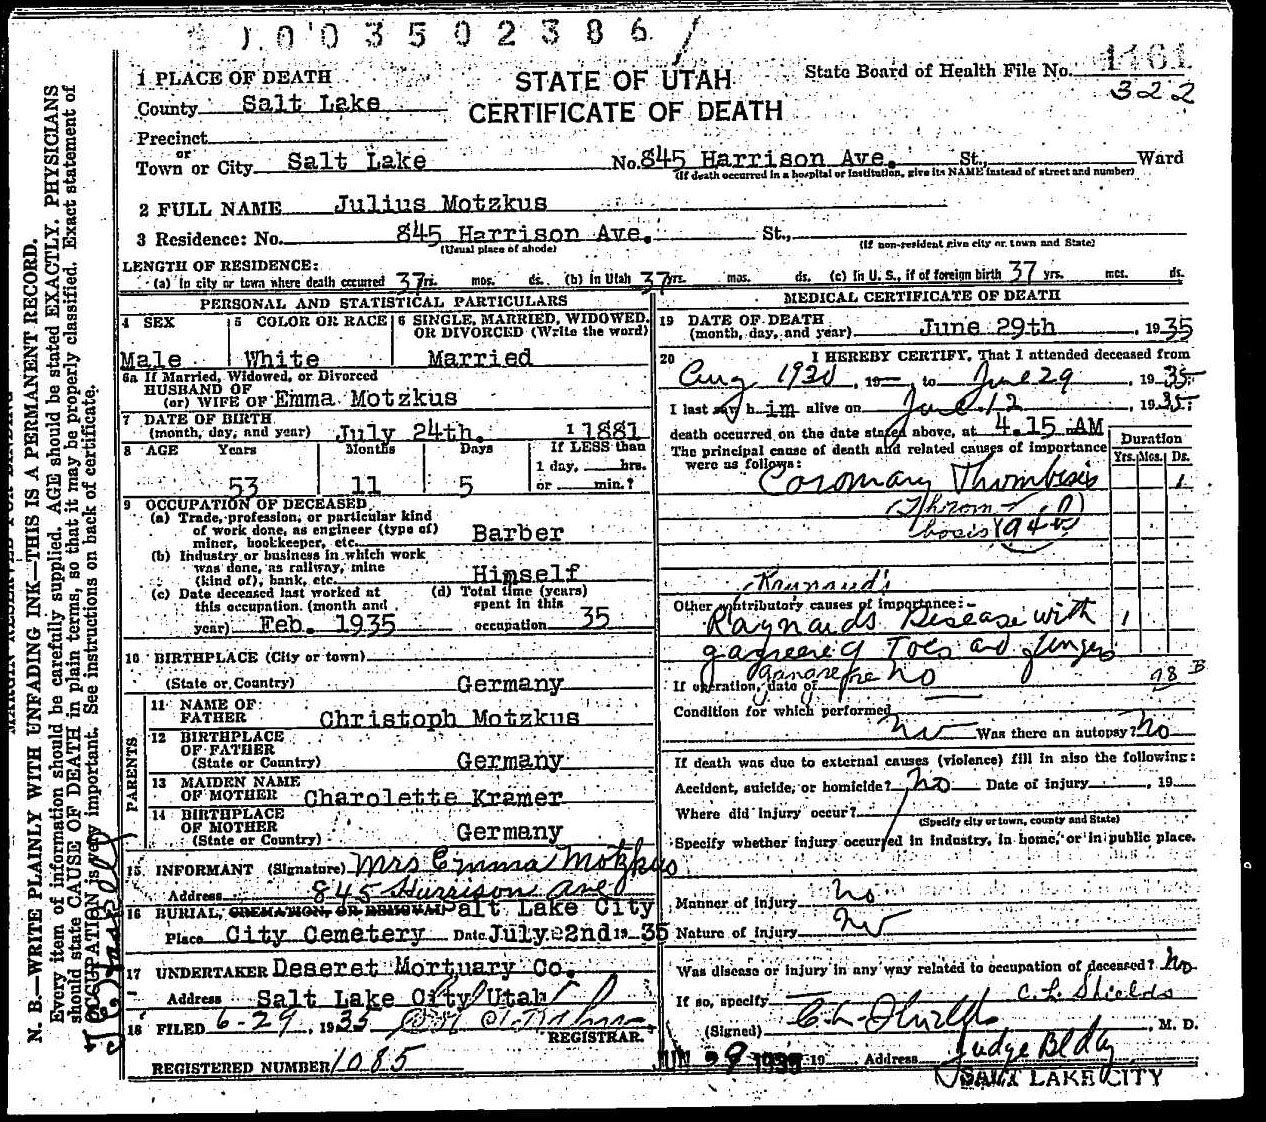 1003502386
1 PLACE OF DEATH
STATE OF UTAH
CERTIFICATE OF DEATH
State Board of Health File No. 1161
322
County Salt Lake
Precinct
or
Town or City Salt Lake No. 845 Harrison Ave. St., Ward
(If death occurred in a hospital or institution, give its NAME instead of street and number)
2 FULL NAME Julius Motzkus
3 Residence: No. 845 Harrison Ave. St.,
(Usual place of abode) (If non-resident give city or town and State)
LENGTH OF RESIDENCE:
(a) In city or town where death occurred 37 yrs. mos. ds. (b) In Utah 37 yrs. mos. ds. (c) In U. S., if of foreign birth 37 yrs. mos. ds.
PERSONAL AND STATISTICAL PARTICULARS
4 SEX
Male
5 COLOR OR RACE
White
6 SINGLE, MARRIED, WIDOWED, OR DIVORCED (Write the word)
Married
6a If Married, Widowed, or Divorced
HUSBAND OF
(or) WIFE OF Emma Motzkus
7 DATE OF BIRTH
(month, day, and year) July 24th. 1881
8 AGE Years Months Days If LESS than
1 day, hrs.
53 11 5 or min.?
9 OCCUPATION OF DECEASED
(a) Trade, profession, or particular kind
of work done, as engineer (type of)
miner, bookkeeper, etc. Barber
(b) Industry or business in which work
was done, as railway, mine
(kind of), bank, etc. Himself
(c) Date deceased last worked at
this occupation. (month and
year) Feb. 1935
(d) Total time (years)
spent in this
occupation 35
10 BIRTHPLACE (City or town)
(State or Country) Germany
PARENTS
11 NAME OF
FATHER Christoph Motzkus
12 BIRTHPLACE
OF FATHER
(State or Country) Germany
13 MAIDEN NAME
OF MOTHER Charolette Kramer
14 BIRTHPLACE
OF MOTHER
(State or Country) Germany
15 INFORMANT (Signature) Mrs Emma Motzkus
Address 845 Harrison Ave
16 BURIAL, CREMATION, OR REMOVAL Salt Lake City
Place City Cemetery Date July 2nd 1935
17 UNDERTAKER Deseret Mortuary Co.
Address Salt Lake City Utah
18 FILED 6-29, 1935
REGISTRAR.
REGISTERED NUMBER 1085
MEDICAL CERTIFICATE OF DEATH
19 DATE OF DEATH
(month, day, and year) June 29th, 1935
20 I HEREBY CERTIFY, That I attended deceased from
Aug 1930, 19— to June 29, 1935
I last saw him alive on June 12, 1935
death occurred on the date stated above, at 4.15 AM
The principal cause of death and related causes of importance
were as follows:
Duration
Yrs. Mos. Ds.
Coronary Thrombisis 1
(Throm-
bosis) 94
Raynaud's
Other contributory causes of importance:
Raynards Disease with 1
gangrene of Toes and fingers
gangrene
If operation, date of no 98 B
Condition for which performed
no Was there an autopsy? no
If death was due to external causes (violence) fill in also the following:
Accident, suicide, or homicide? no Date of injury , 19
Where did injury occur?
(Specify city or town, county and State)
Specify whether injury occurred in industry, in home, or in public place.
Manner of injury no
Nature of injury no
Was disease or injury in any way related to occupation of deceased? no
If so, specify — C. L. Shields
(Signed) C. L. Shields M. D.
JUN 29 1935 19 Address Judge Bldg
SALT LAKE CITY
N. B.—WRITE PLAINLY WITH UNFADING INK—THIS IS A PERMANENT RECORD.
Every item of information should be carefully supplied. AGE should be stated EXACTLY. PHYSICIANS
should state CAUSE OF DEATH in plain terms, so that it may be properly classified. Exact statement of
OCCUPATION is very important. See instructions on back of certificate.